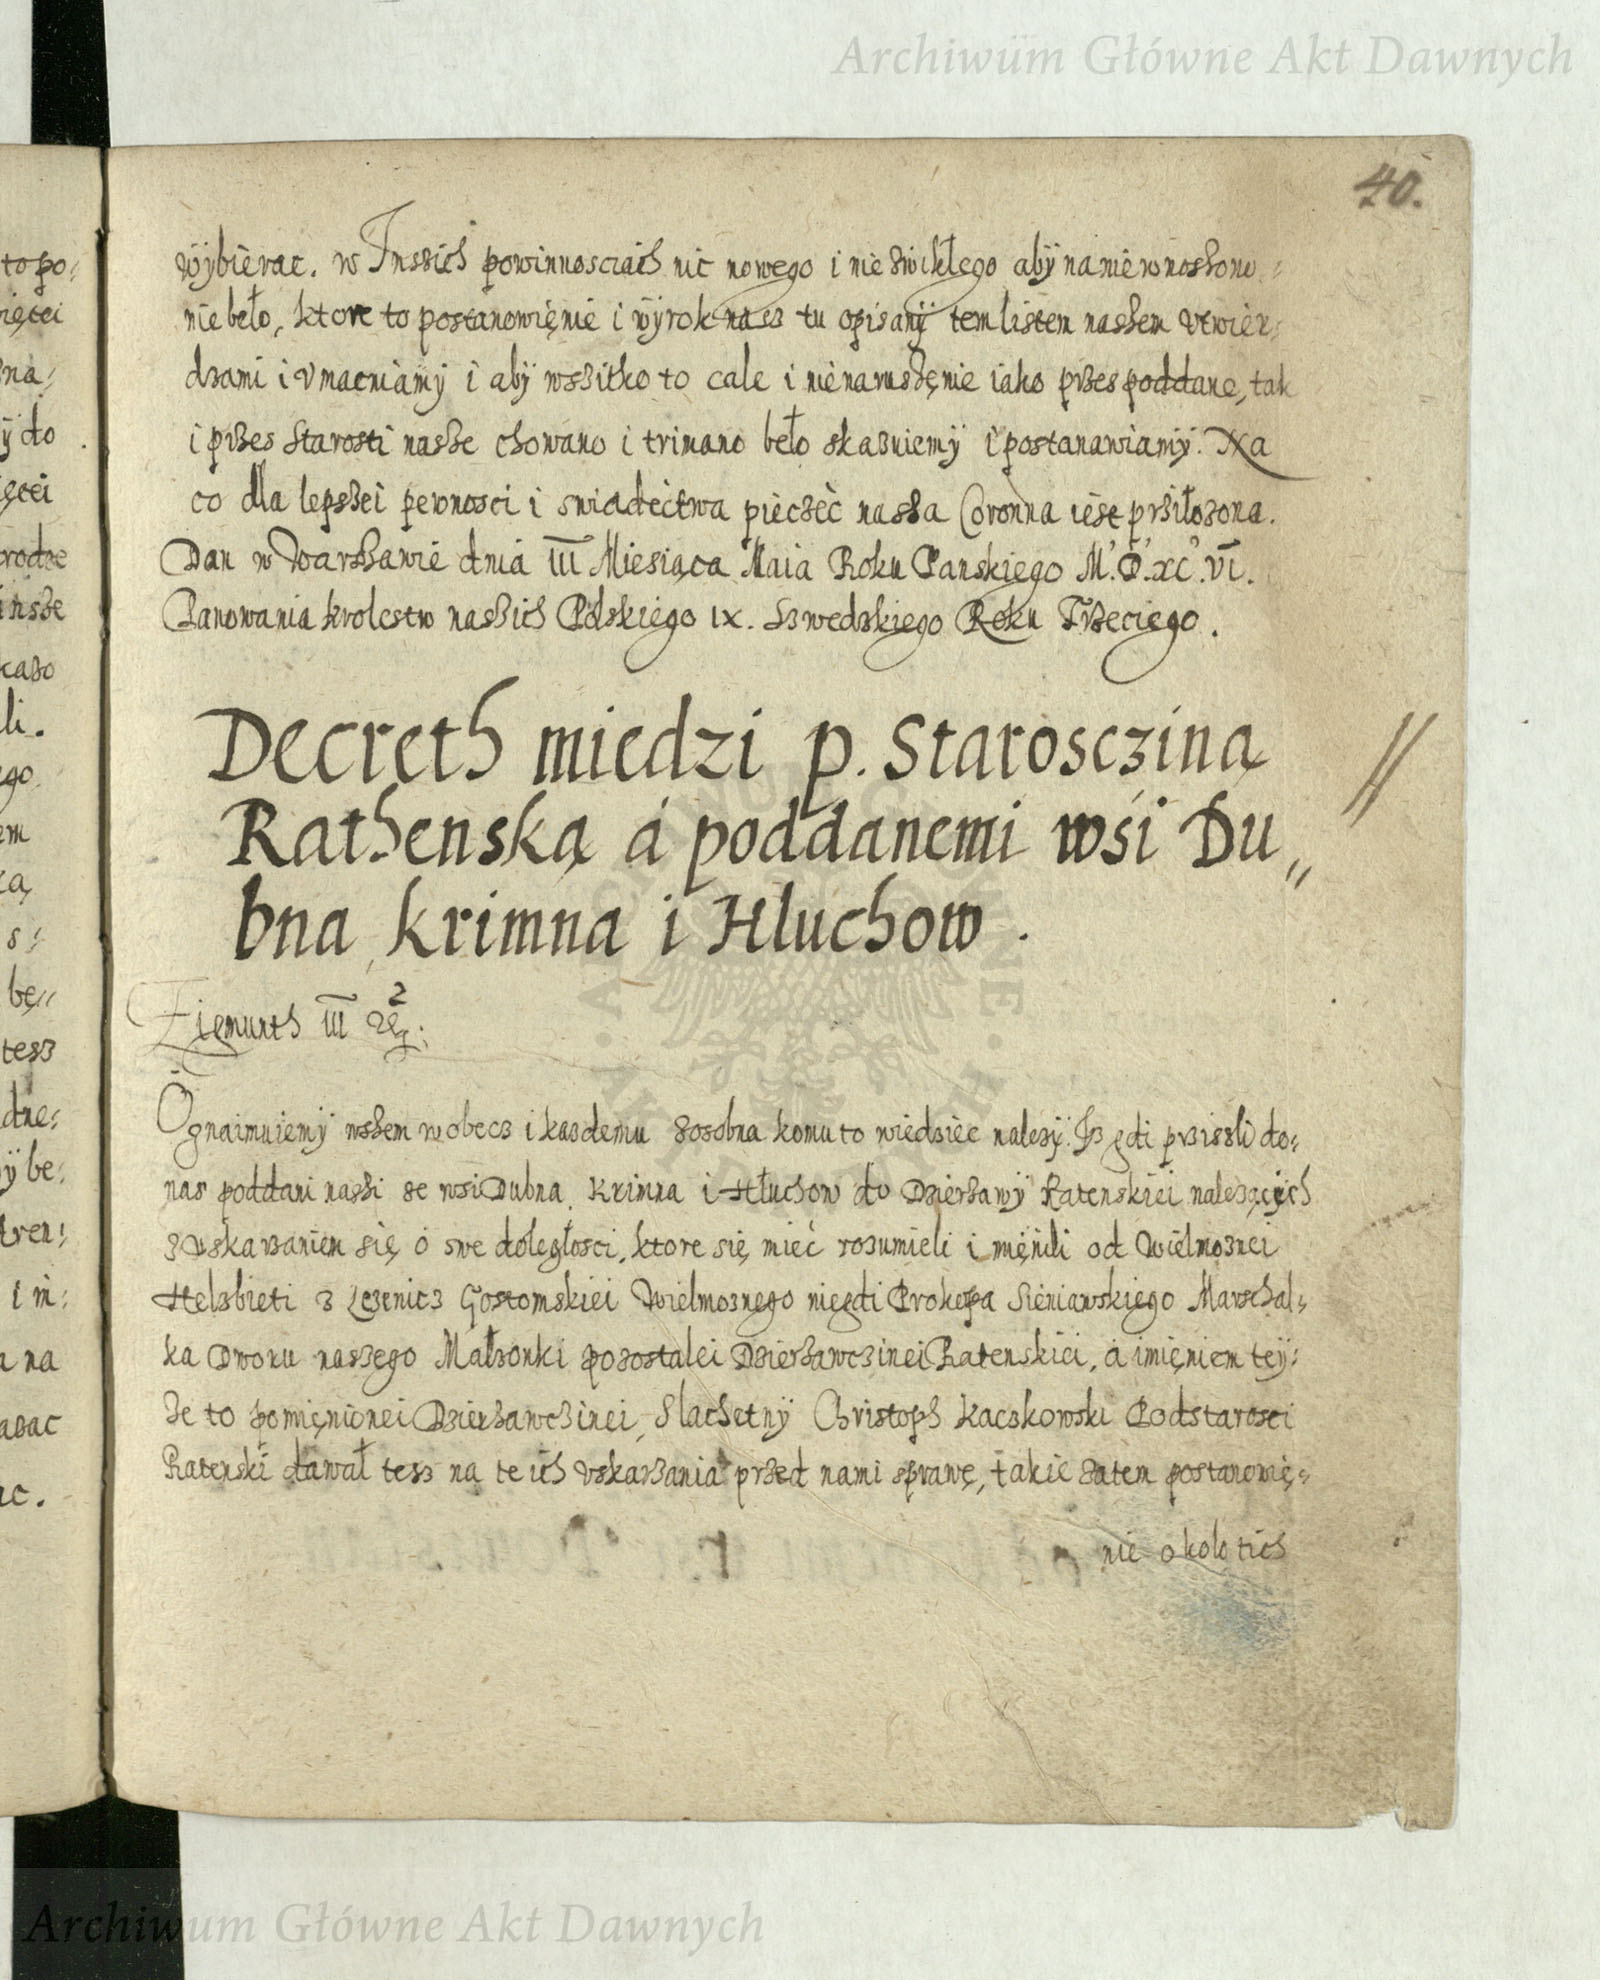 Archiwum Główne Akt Dawnych
40.
wÿbierac. w Inszich powinnosciach nic nowego i nie zwikłego abÿ na nie wnoszono
nie beło, ktore to postanowięnie i wÿrok nasz tu opisanÿ tem listem naszem vtwier:
dzami i vmacniamÿ i abÿ wszitko to cale i nienaruszęnie iako przes poddane, tak
i przes Starosti nasze chowano i trimano beło skazuiemÿ i postanawiamÿ. Na
co dla lepszei pewnosci i swiadectwa pieczęc nasza Coronna iest prziłozona.
Dan w Warszawie dnia III Miesiąca Maia Roku Panskiego M.D.XC.VI.
Panowania krolestw naszich Polskiego IX. Szwedzkiego Roku Trzeciego.
Decreth miedzi p. Staroscziną
Rathenską á poddanemi wśi Du„
bna, krimna i Hłuchow.
Zigmunth III
Oznaimuiemÿ wszem wobecz i kazdemu zosobna komu to wiedziec nalezÿ. Iz gdi prziszli do:
nas poddani naszi ze wsi Dubna, Krimna i Hłuchow do Dzierzawÿ Ratenskiei nalezącÿch
z vskarzaniem się o swe doległosci, ktore się mieć rozumieli i mięnili od Wielmoznei
Helzbieti z Lezenicz Gostomskiei Wielmoznego niegdi Prokopa Sieniawskiego Marschal:
ka Dworu naszego Małzonki pozostalei Dzierzawczinei Ratenskiei, á imięniem teÿ:
ze to pomięnionei Dzierzawczinei, Slachetnÿ Christoph Kaczkowski Podstarosci
Ratenski dawał tesz na te ich vskarzania przed nami sprawę, takie zatem postanowię:
nie okolo tich
Archiwum Główne Akt Dawnych